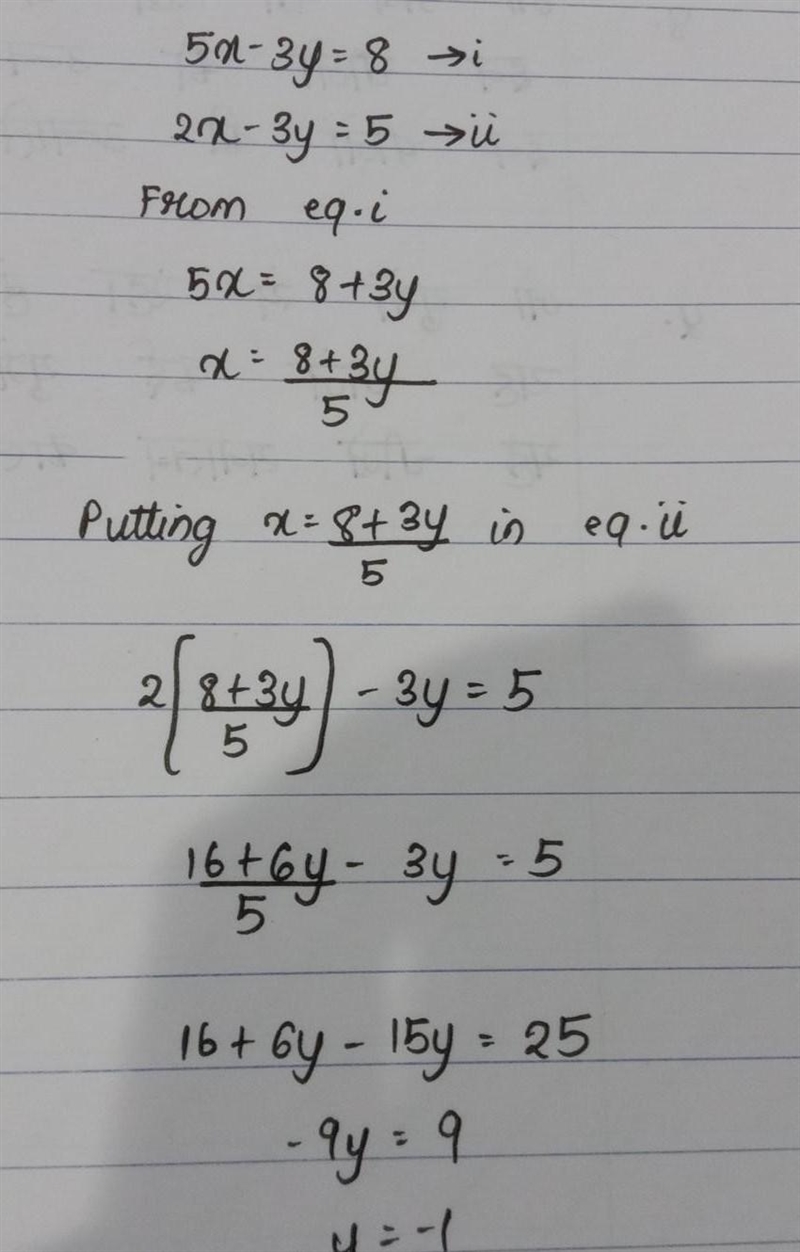 5x - 3y = 8 → i
2x - 3y = 5 → ii
From eq. i
5x = 8 + 3y
x = 8 + 3y
5
Putting x = 8 + 3y in eq. ii
5
2[8 + 3y) - 3y = 5
5
16 + 6y - 3y = 5
5
16 + 6y - 15y = 25
- 9y = 9
y = -1